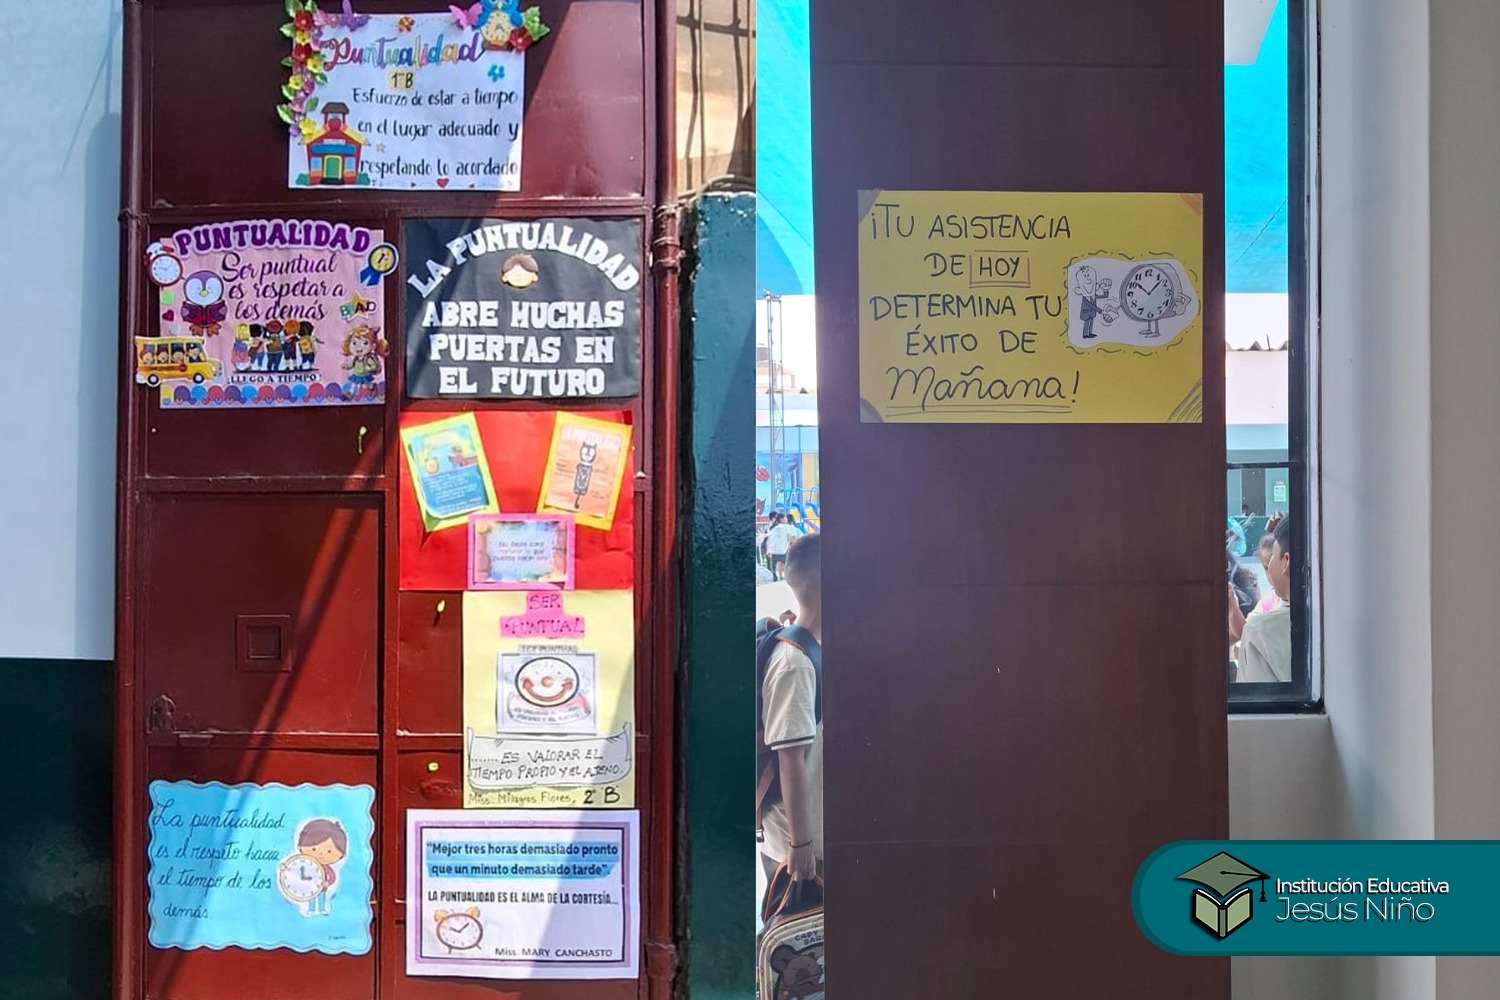 Puntualidad
1° B
Esfuerzo de estar a tiempo
en el lugar adecuado y
respetando lo acordado
PUNTUALIDAD
Ser puntual
es respetar a
los demás
¡LLEGO A TIEMPO!
LA PUNTUALIDAD
ABRE MUCHAS
PUERTAS EN
EL FUTURO
SER
PUNTUAL
SER PUNTUAL
....... ES VALORAR EL
TIEMPO PROPIO Y EL AJENO.
Miss: Milagros Flores. 2° "B"
La puntualidad
es el respeto hacia
el tiempo de los
demás.
"Mejor tres horas demasiado pronto
que un minuto demasiado tarde".
LA PUNTUALIDAD ES EL ALMA DE LA CORTESÍA...
Miss. MARY CANCHASTO
¡TU ASISTENCIA
DE HOY
DETERMINA TU
ÉXITO DE
Mañana!
Institución Educativa
Jesús Niño